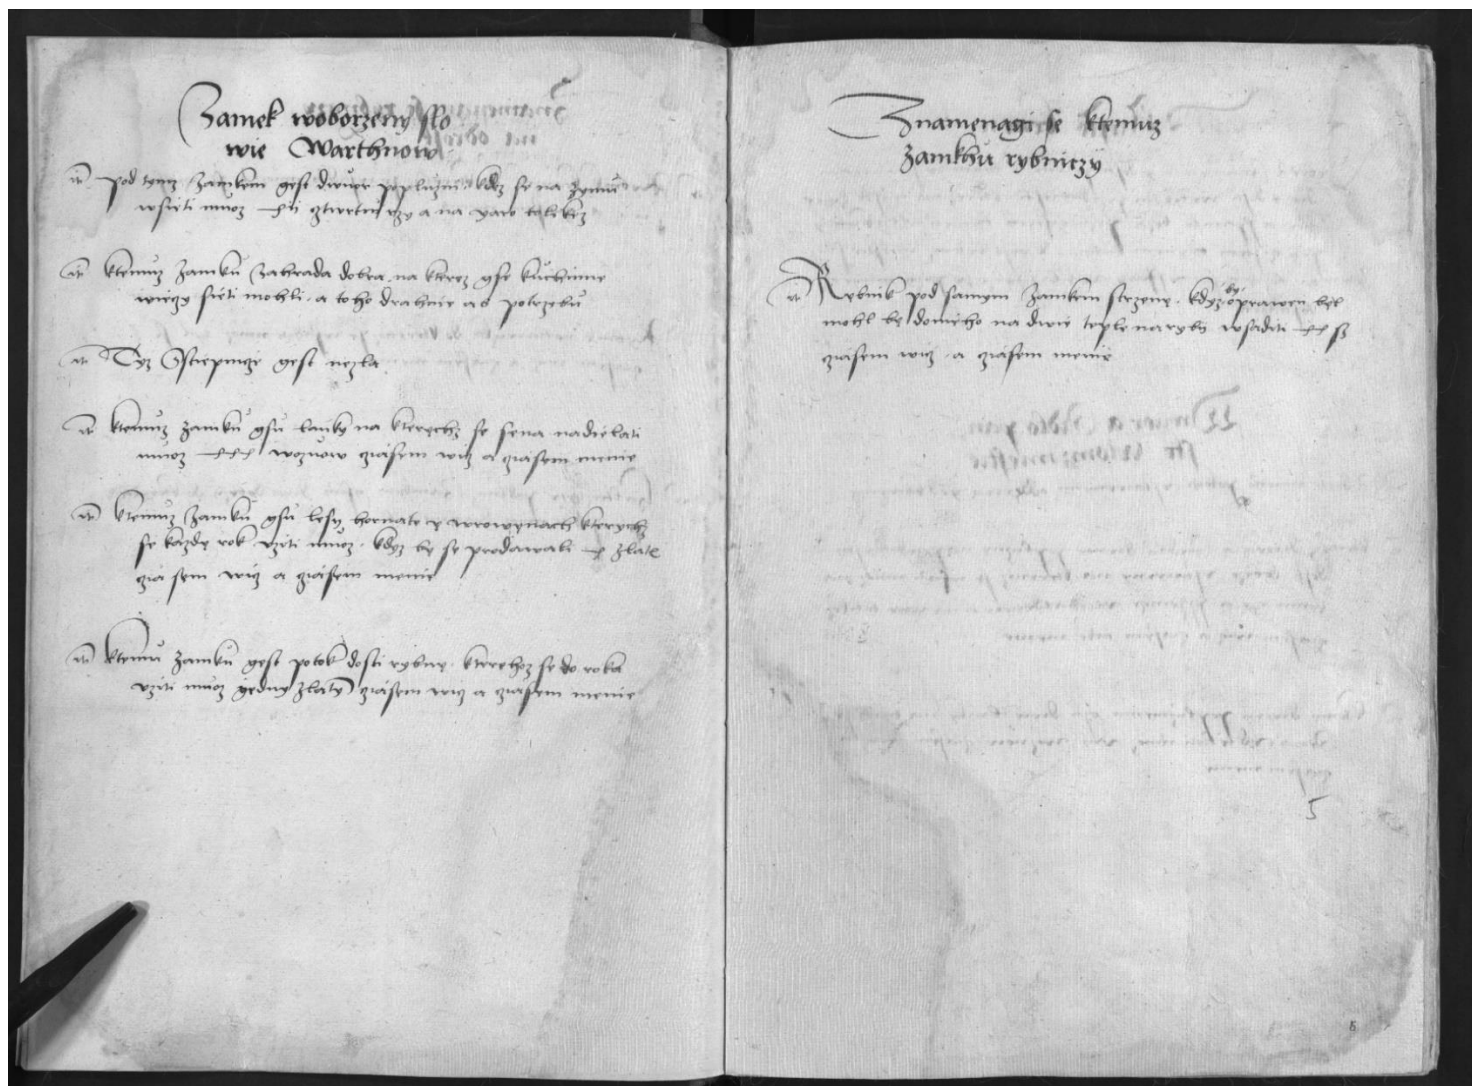 Zamek woborzeny slo
wie Warthnow
Pod tymz zamkem gest dwuor poplužni kdez se na zymu
wsieti muoz
a na yaro
ktemuz zamku zahrada dobra na kterez gse kuchinne
wieczy sieti mohli a toho drahnie ad potrzebu
Tyz Sstiepnicze gest nezla
ktemuz zamku gsu lauky na kterychz se sena nadielati
muoz xxx wozuow cziasem wicz a cziasem menie
ktemuz zamku gsu lesy hornate y wrowynach kterychz
se kazdy rok vziti muoz kdyz by se prodawali x zlate
cziasem wicz a cziasem menie
ktemu zamku gest potok dosti rybny kterehoz se do roka
vziti muoz gedny zlaty cziasem wicz a cziasem menie
Znamenagi se ktemuz
zamkhu rybniczy
Rybnik pod samym zamkem strzeny kdyz by oprawen byl
mohl by do nieho na dwie teple na ryby wsaditi xx s
cziasem wicz a cziasem menie
5